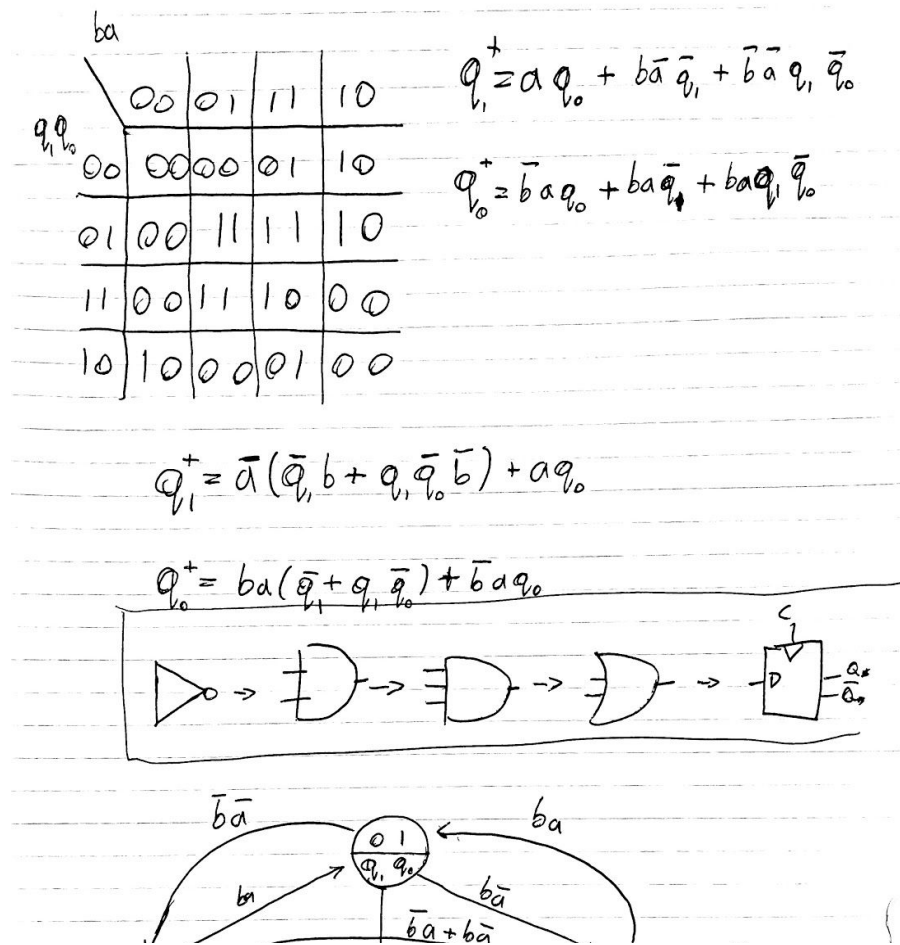 ba
00 01 11 10
q₁q₀
00 00 00 01 10
01 00 11 11 10
11 00 11 10 00
10 10 00 01 00
q₁⁺ = a q₀ + b a̅ q̅₁ + b̅ a̅ q₁ q̅₀
q₀⁺ = b̅ a q₀ + b a q̅₁ + b a q₁ q̅₀
q₁⁺ = a̅ (q̅₁ b + q₁ q̅₀ b̅) + a q₀
q₀⁺ = b a (q̅₁ + q₁ q̅₀) + b̅ a q₀
C
D Q₀
Q̅₀
b̅ a̅
ba
0 1
Q₁ Q₀
ba
b a̅
b̅ a + b a̅